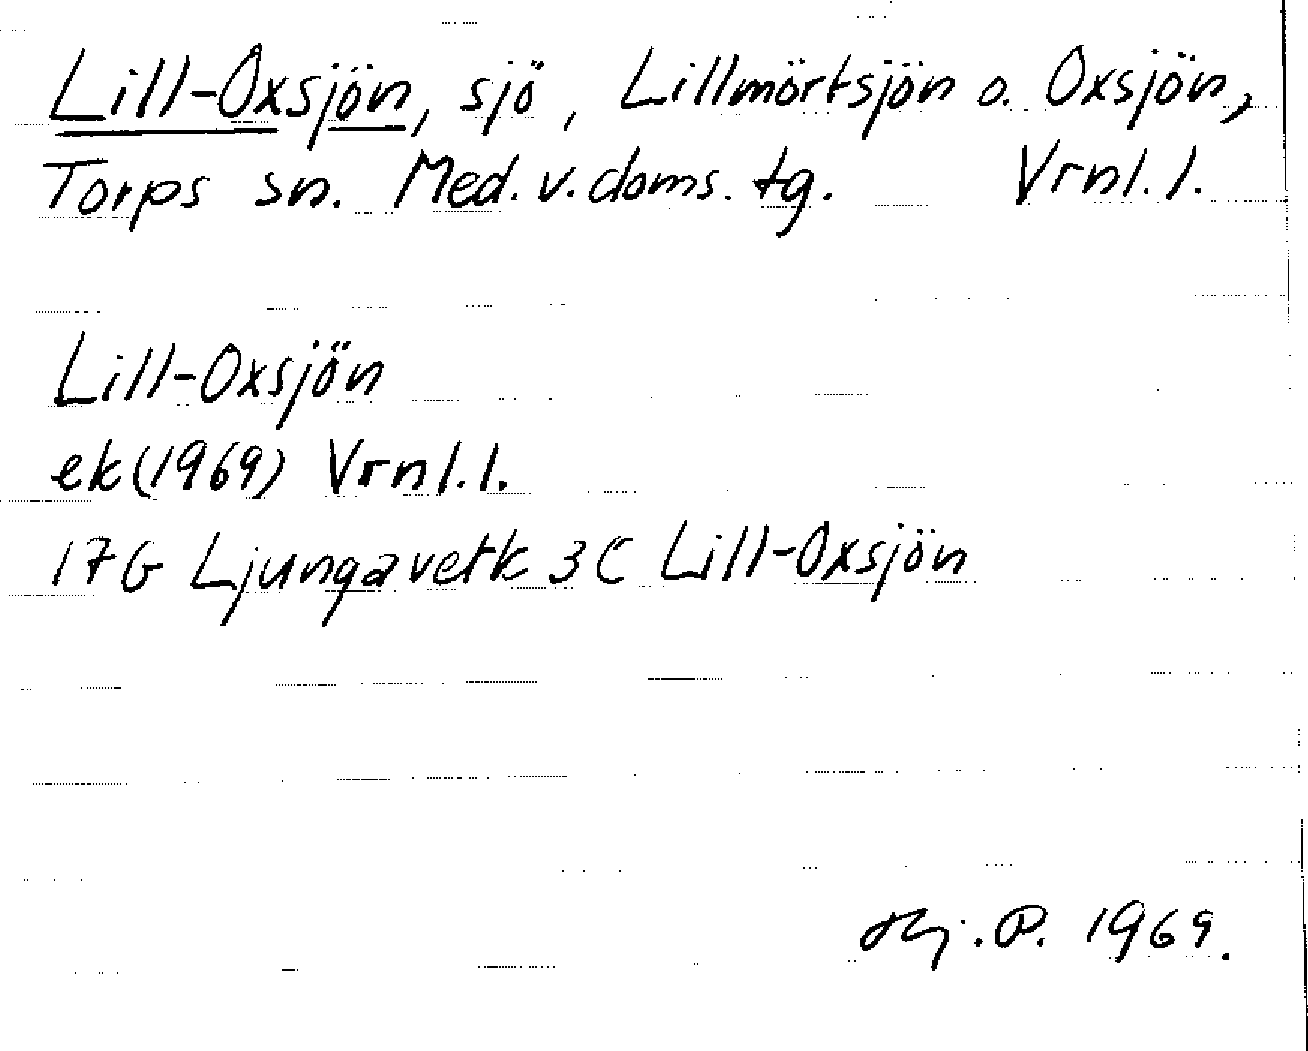 Lill-Oxsjön, sjö, Lillmörtsjön o. Oxsjön,
Torps sn. Med. v. doms. tg. Vrnl. l.
Lill-Oxsjön
ek (1969) Vrnl. l.
17G Ljungaverk 3C Lill-Oxsjön
Hj. P. 1969.